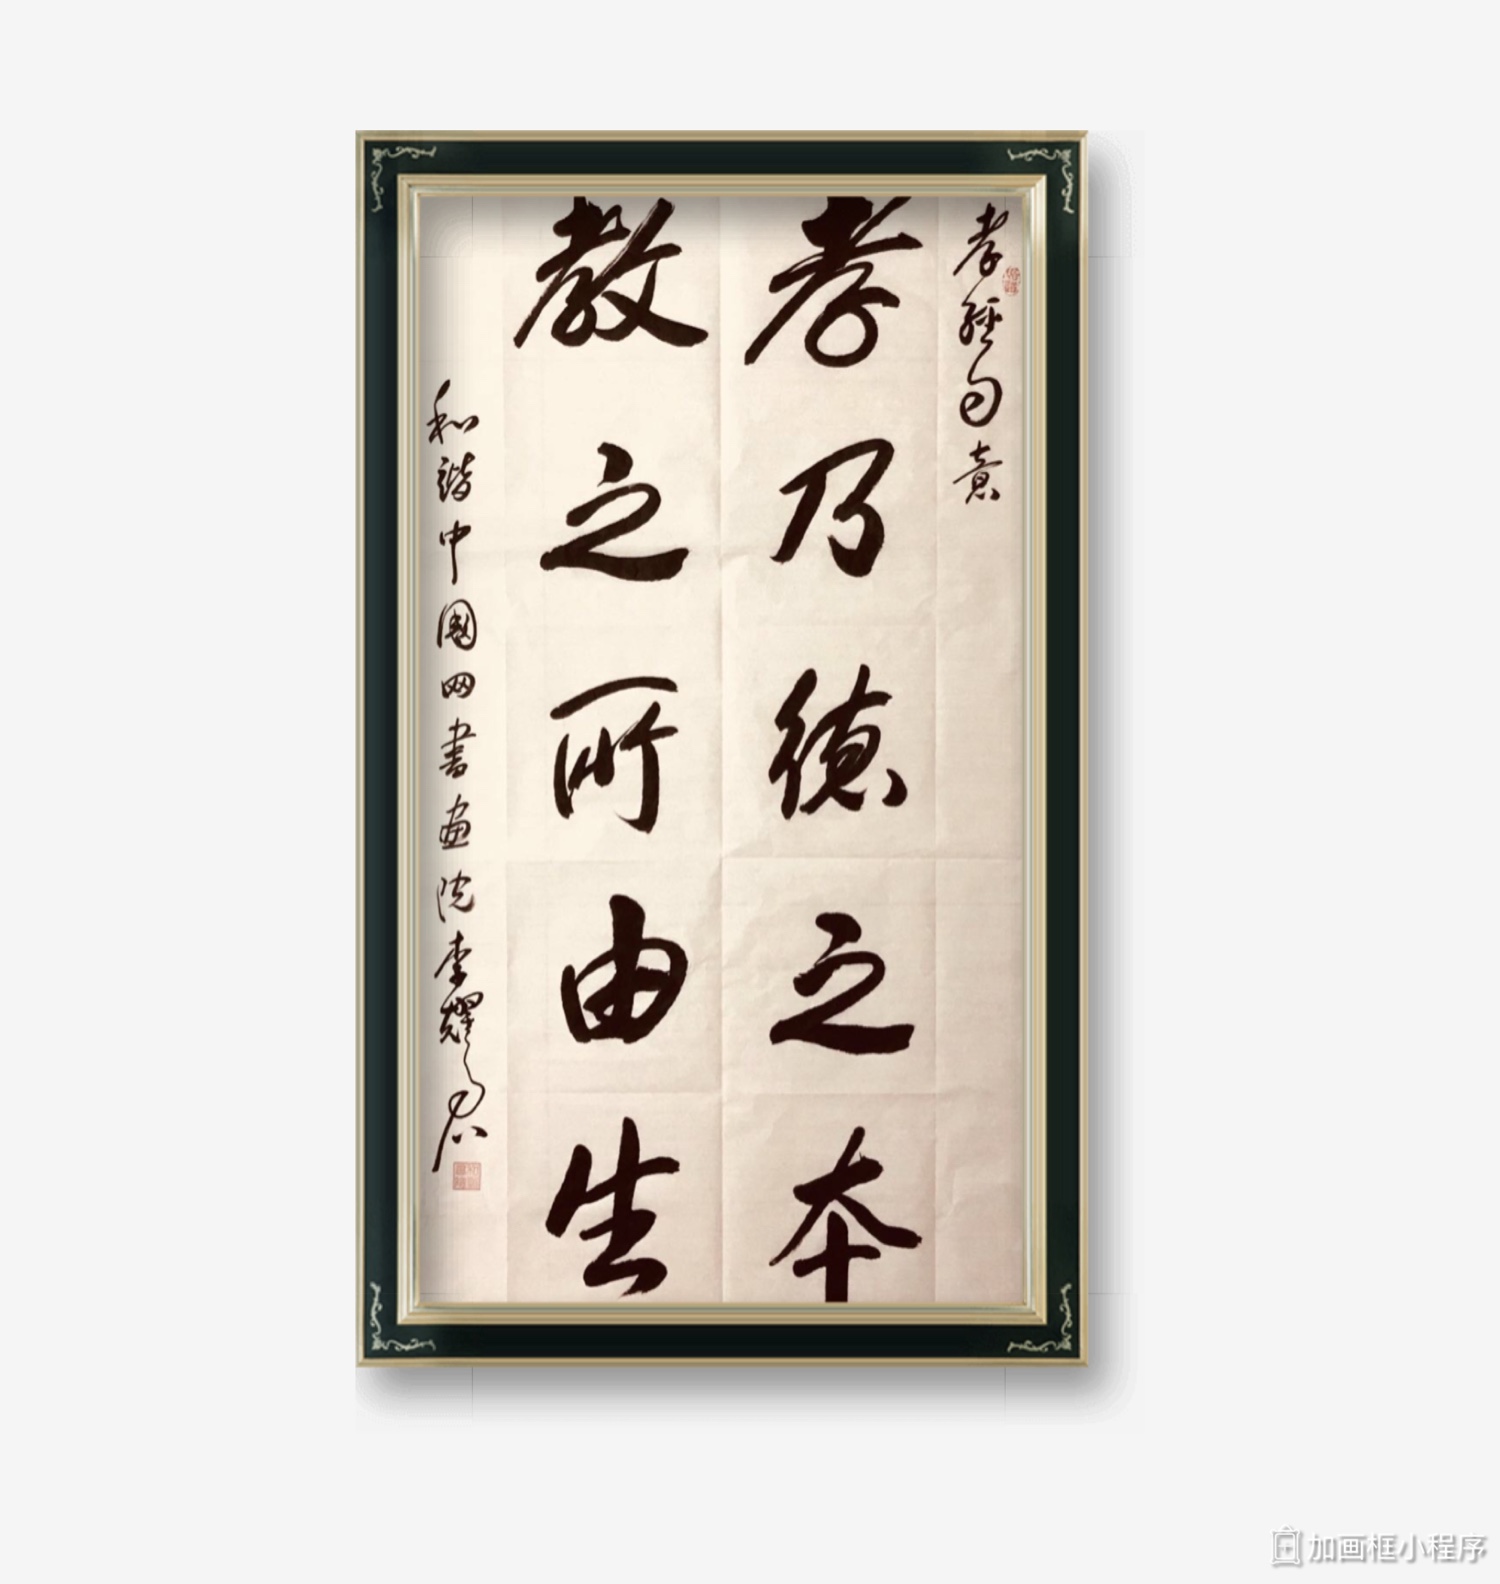 孝經句意
孝乃德之本
教之所由生
和谐中國网書画院李耀
加画框小程序